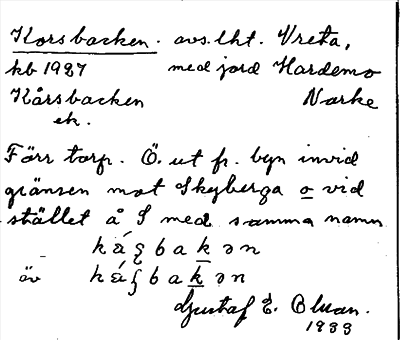 Korsbacken. avs. lht. Vreta,
kb 1927 med jord Hardemo
Kårsbacken Narke
ek.
Förr torp. Ö. ut fr. byn invid
gränsen mot Skyberga o vid
stället å S med samma namn
kåʂbakən
äv kåʂbakən
Gustaf E. Bluan.
1933